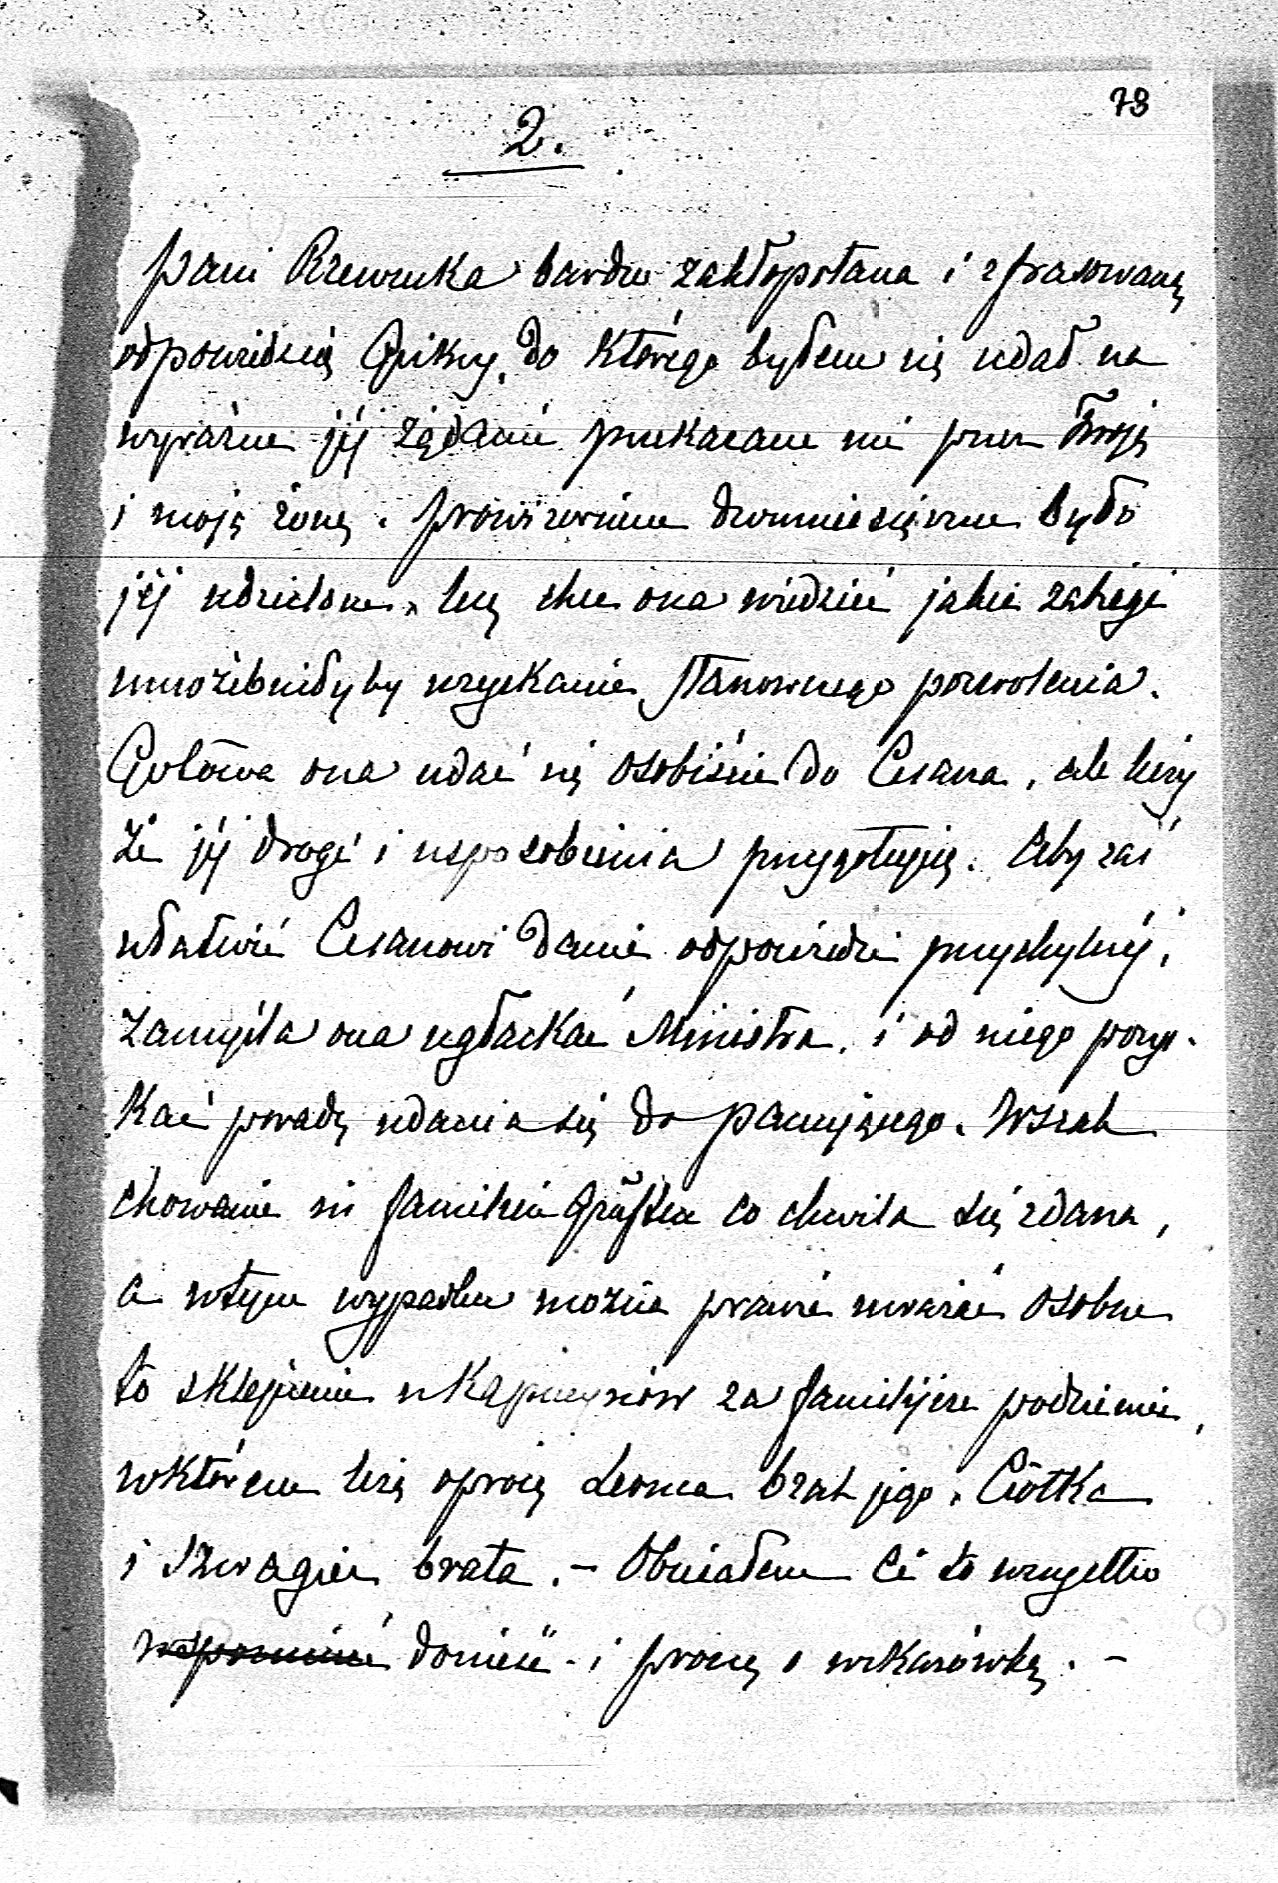 78
2.
Pani Rzewuska bardzo zakłopotana i zfrasowaną
odpowiedzią do którego byłem się udał na
wyraźne jéj żądanie przekazane mi przez Twoją
i moją żonę. prowizorium dwumiesięczne było
jéj udzielone, lecz chce ona wiedzieć jakie zabiegi
umożebniłyby uzyskanie stanowczego pozwolenia.
Gotowa ona udać się osobiście do Cesarza, ale liczy
że jéj drogę i usposobienia przygotuję. Aby zaś
ułatwić Cesarzowi danie odpowiedzi przychylnéj,
zamyśla ona ugłaskać Ministra, i od niego pozys-
kać poradę udania się do panującego. Wszak
chowanie in familien Grüften co chwila się zdarza,
a w tym wypadku można prawie uważać osobne
to sklepienie u Kapucynów za familijne podziemie,
w którem leżą oprócz Leona brat jego, Ciotka
i Szwagier brata. – Obiecałem Ci to wszystko
donieść - i proszę o wskazówkę. –